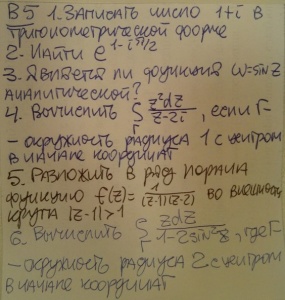 В5 1. Записать число 1+i в
тригонометрической форме
2. Найти e^{1-iπ/2}
3. Является ли функция ω=sin z
аналитической?
4. Вычислить ∫_Γ z²dz/(z-2i), если Γ
- окружность радиуса 1 с центром
в начале координат
5. Разложить в ряд Лорана
функцию f(z)=1/((z-1)(z-2)) во внешности
круга |z-1|>1
6. Вычислить ∫_Γ zdz/(1-2sin²z), где Γ
- окружность радиуса 2 с центром
в начале координат